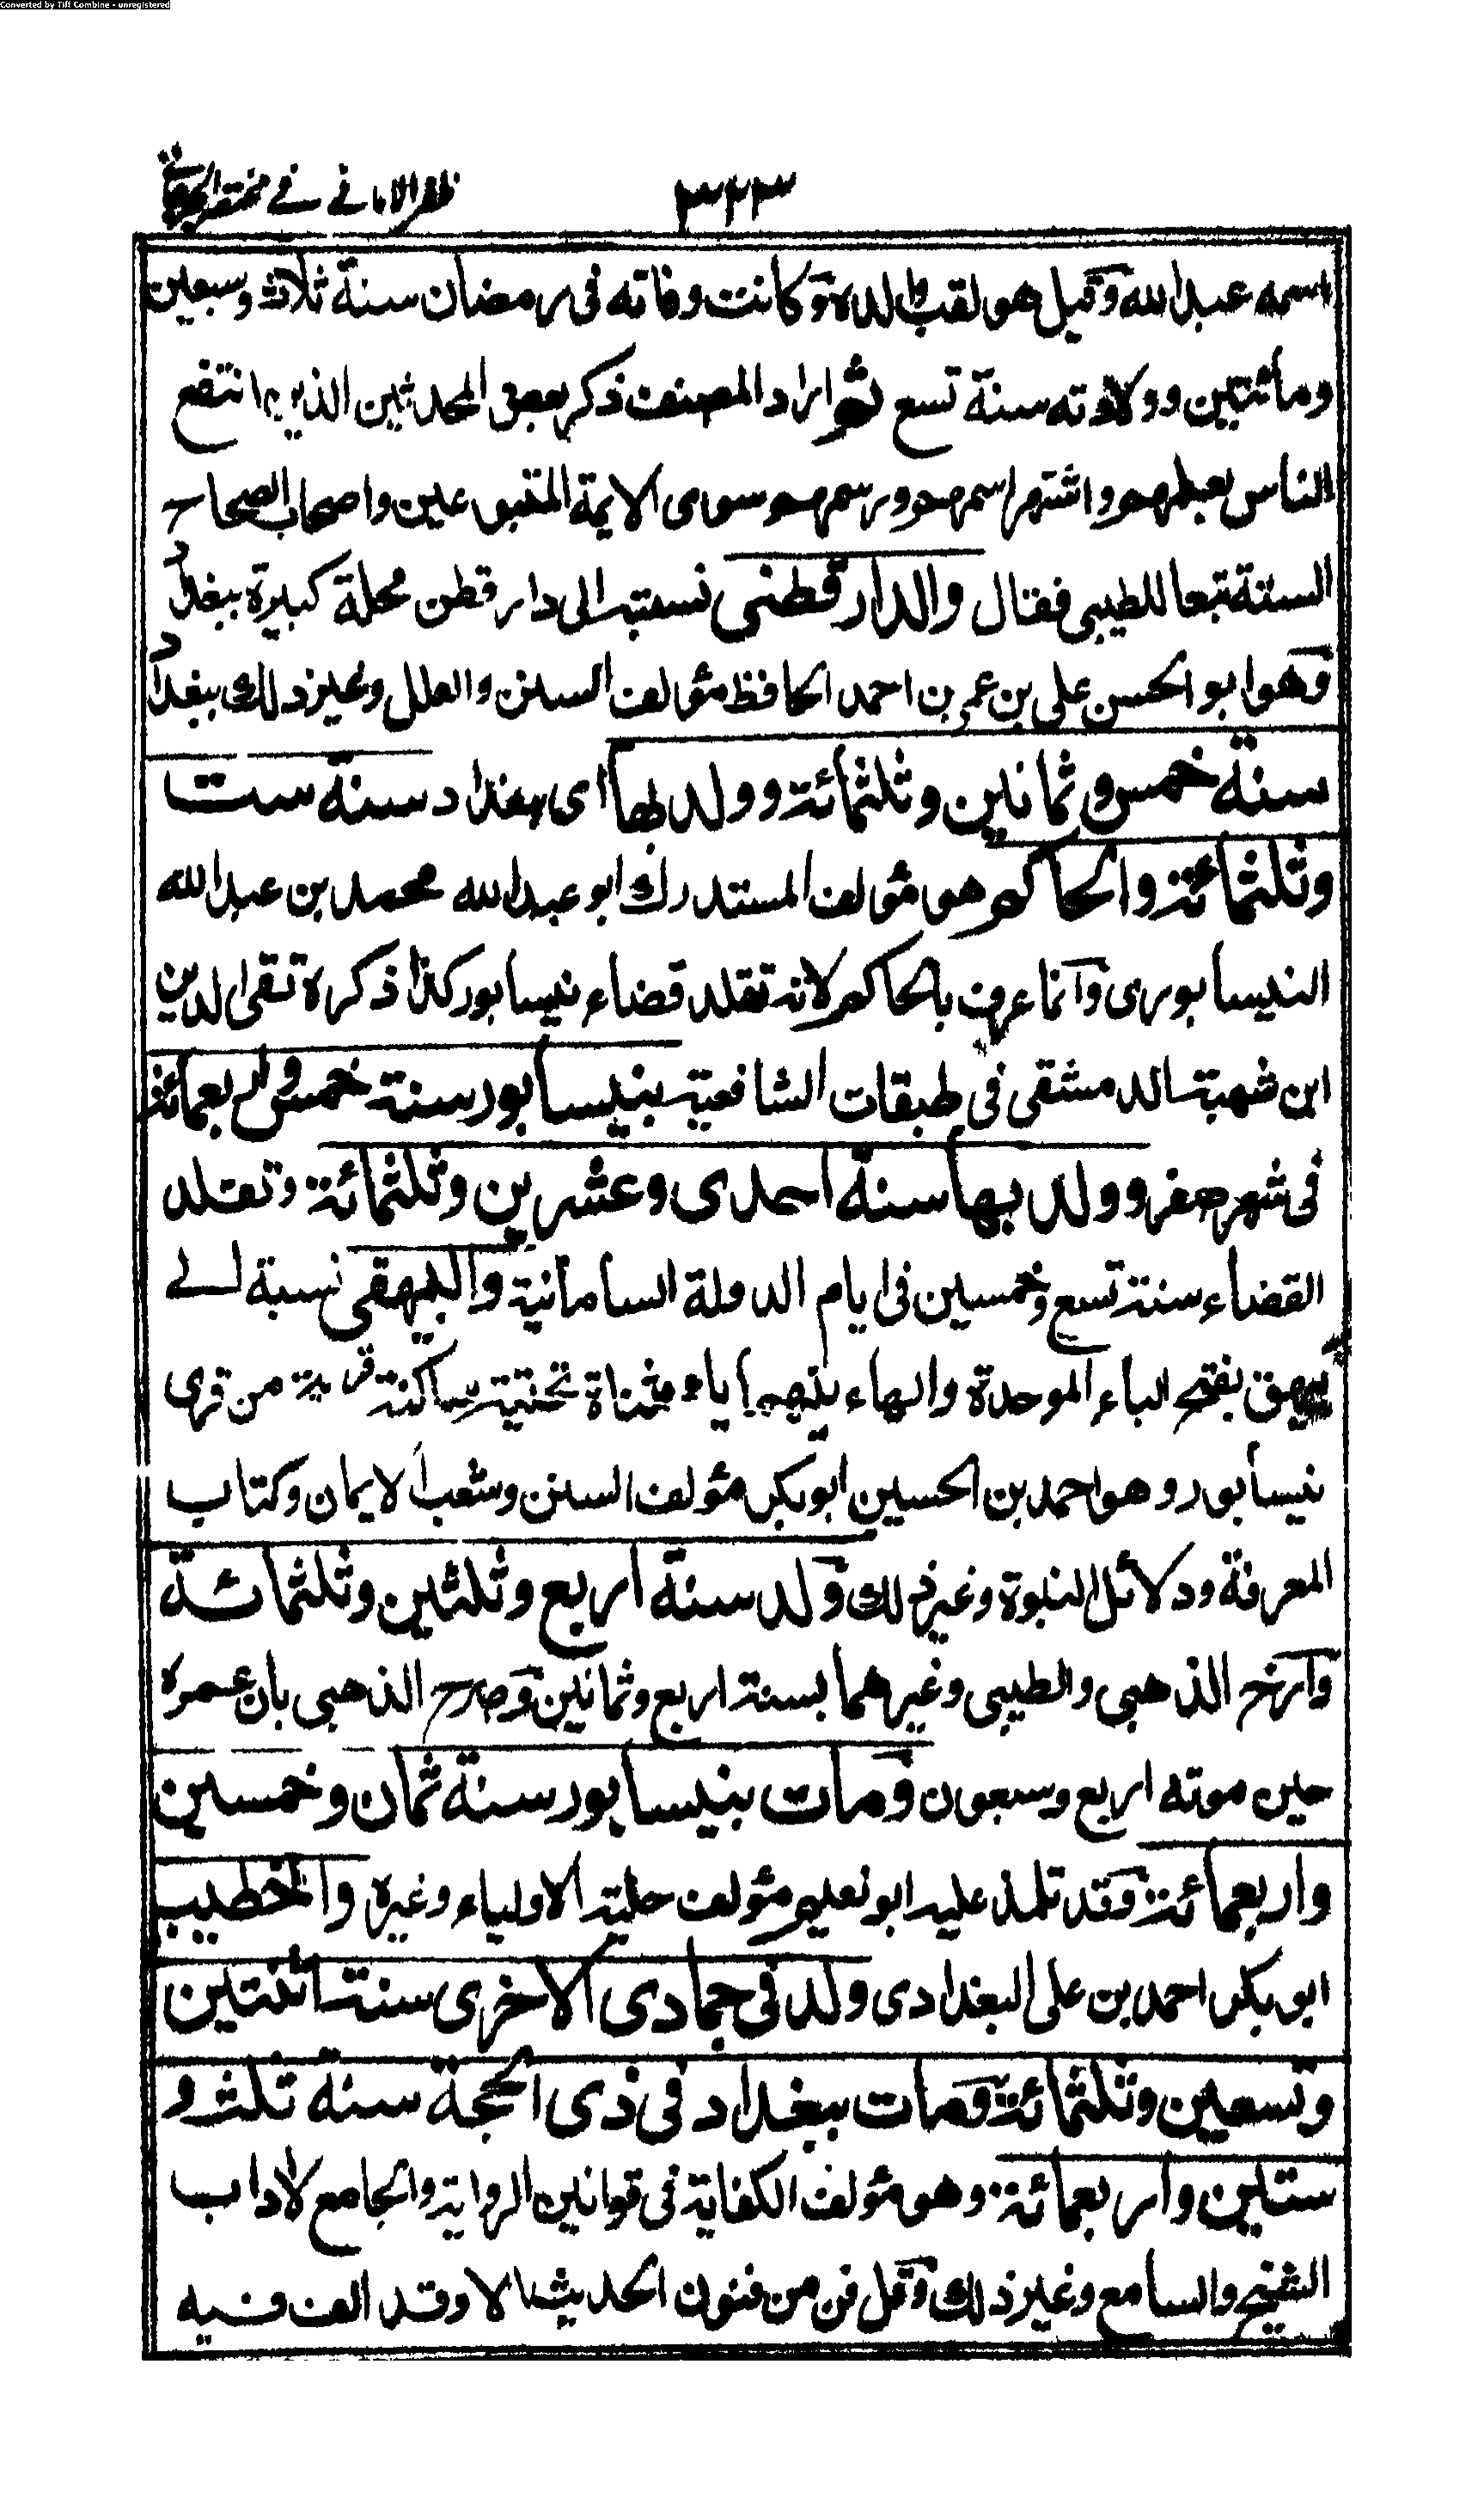 Converted by Tiff Combine - unregistered
ظفر الامانے فے مختصر الجرجانی
٣٢٣
اسمه عبد الله وقيل هو لقب والده وكانت وفاته فى رمضان سنة ثلاث وسبعين
ومائتين وولادته سنة تسع ثم اراد المصنف ذكر بعض المحدثين الذين انتفع
الناس بعلمهم واشتهر اسمهم ورسمهم سوى الايمة المتبوعين واصحاب الصحاح
الستة تبعا للطيبى فقال والدارقطنى نسبته الى دار قطن محلة كبيرة ببغداد
وهو ابو الحسن على بن عمر بن احمد الحافظ مؤلف السنن والعلل وغير ذلك ببغداد
سنة خمس وثمانين وثلثمائة وولد بها اى ببغداد سنة ست
وثلثمائة والحاكم هو مؤلف المستدرك ابو عبد الله محمد بن عبد الله
النيسابورى وانما عرف بالحاكم لانه تقلد قضاء نيسابور كذا ذكره تقى الدين
ابن شهبة الدمشقى فى طبقات الشافعية بنيسابور سنة خمس واربعمائة
فى شهر صفر وولد بها سنة احدى وعشرين وثلثمائة وتقلد
القضاء سنة تسع وخمسين فى ايام الدولة السامانية والبيهقى نسبة الے
بيهق بفتح الباء الموحدة والهاء بينهما ياء مثناة تحتية ساكنة قرية من قرى
نيسابور وهو احمد بن الحسين ابو بكر مؤلف السنن وشعب الايمان وكتاب
المعرفة ودلائل النبوة وغير ذلك ولد سنة اربع وثلثين وثلثمائة
وارخ الذهبى والطيبى وغيرهما بسنة اربع وثمانين وصرح الذهبى بان عمره
حين موته اربع وسبعون ومات بنيسابور سنة ثمان وخمسين
واربعمائة وقد تلمذ عليه ابو نعيم مؤلف حلية الاولياء وغيره والخطيب
ابو بكر احمد بن على البغدادى ولد فى جمادى الاخرى سنة اثنتين
وتسعين وثلثمائة ومات ببغداد فى ذى الحجة سنة ثلث و
ستين واربعمائة وهو مؤلف الكفاية فى قوانين الرواية والجامع لاداب
الشيخ والسامع وغير ذلك وقل فن من فنون الحديث الا وقد الف فيه